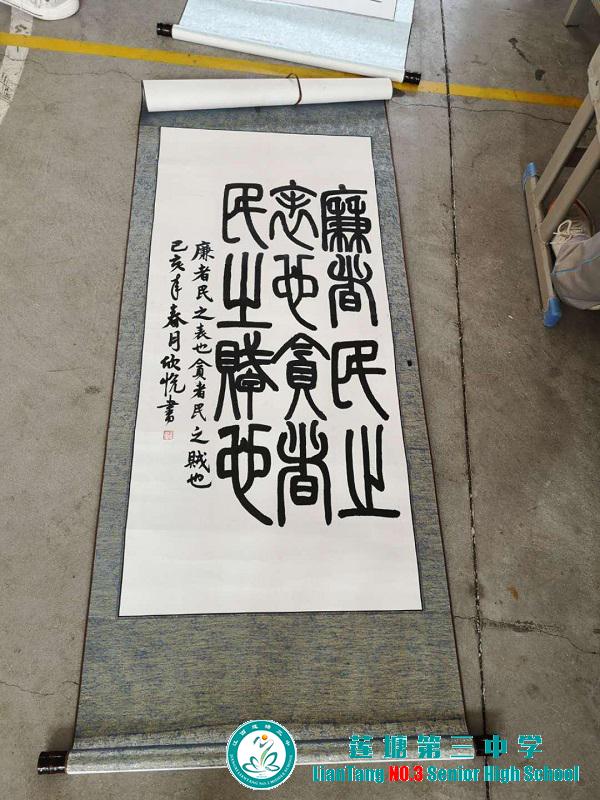 廉者民之
表也貪者
民之賊也
廉者民之表也貪者民之賊也
己亥年春月欣悦書
莲塘第三中学
LianTang NO.3 Senior High School